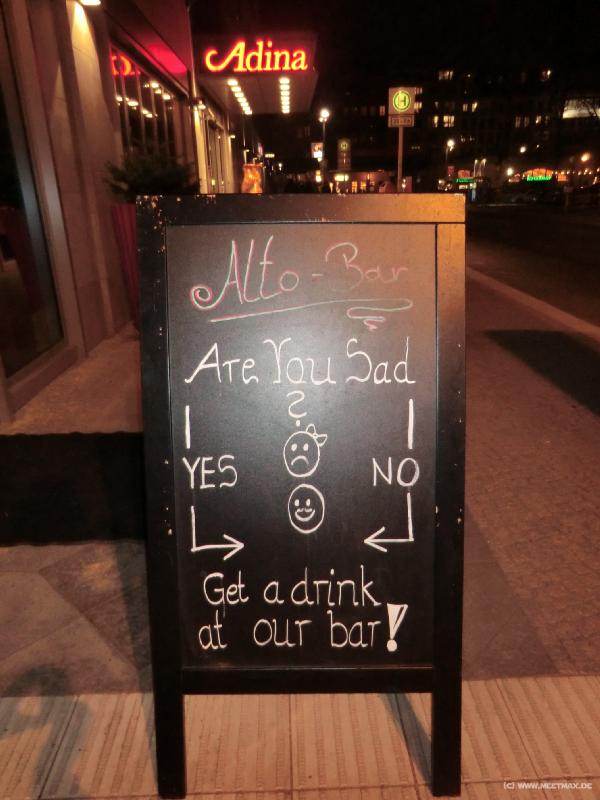 Adina
H
Alto-Bar
Are You Sad
?
YES NO
Get a drink
at our bar!
(C) WWW.MEETMAX.DE